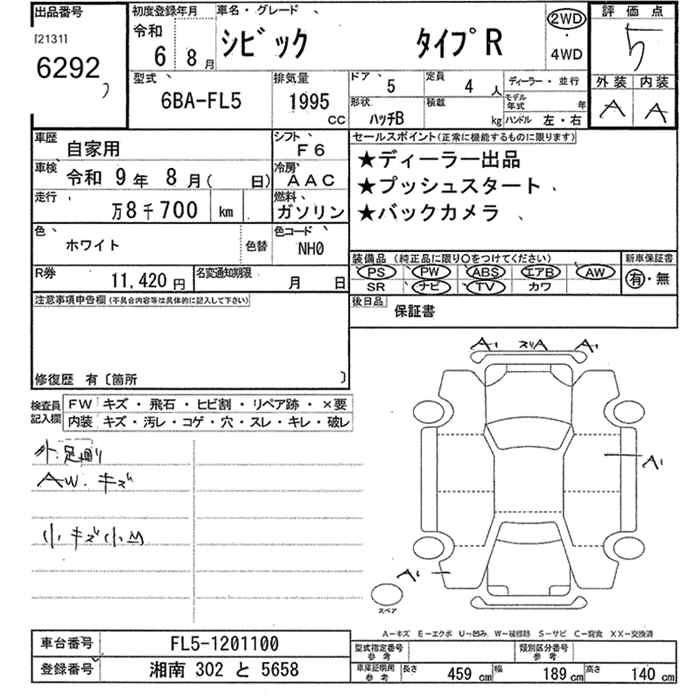 出品番号 初度登録年月 車名・グレード 評価点
[2131] 令和
6292 6 8月 シビック タイプR 2WD ・ 4WD 5
型式 排気量 ドア 5 定員 4人 ディーラー・並行 外装 内装
6BA-FL5 1995 cc 形状 ハッチB 積載 kg モデル年式 年 ハンドル 左・右 A A
車歴 自家用 シフト F6 セールスポイント(正常に機能するものに限ります)
車検 令和 9年 8月( 日) 冷房 AAC ★ディーラー出品
走行 万8千700 km 燃料 ガソリン ★プッシュスタート
★バックカメラ
色 ホワイト 色替 色コード NH0
装備品 (純正品に限り○をつけてください) 新車保証書
R券 11,420円 名変通知期限 月 日 PS PW ABS エアB AW 有・無
SR ナビ TV カワ
注意事項申告欄(不具合内容等は具体的に記入して下さい) 後日品 保証書
修復歴 有〔箇所 〕
A1 スリA A1
検査員記入欄 FW キズ・飛石・ヒビ割・リペア跡・×要
内装 キズ・汚レ・コゲ・穴・スレ・キレ・破レ
外.足廻り
AW.キズ
A1
小キズ小凹
A1
スペア
A-キズ E-エクボ U-凹み W-補修跡 S-サビ C-腐食 XX-交換済
車台番号 FL5-1201100 型式指定番号 参考 類別区分番号 参考
登録番号 湘南 302 と 5658 車庫証明用 参考 長さ 459 cm 幅 189 cm 高さ 140 cm